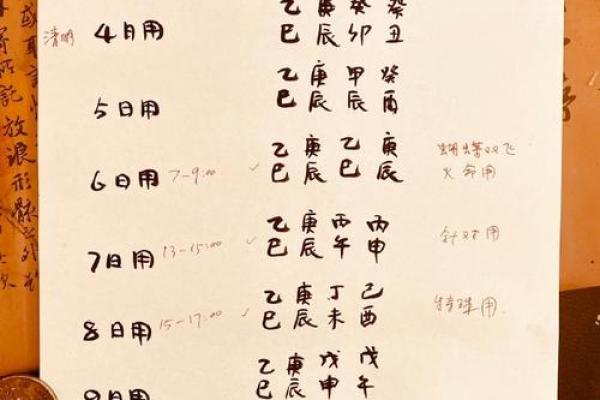 乙 庚 癸 癸
清明 4日用 巳 辰 卯 丑
乙 庚 甲 癸
5日用 巳 辰 辰 酉
乙 庚 乙 庚 蝴蝶双飞
6日用 7-9:00 ✓ 巳 辰 巳 辰 火命用
乙 庚 丙 丙
7日用 13-15:00 ✓ 巳 辰 午 申 针对用
乙 庚 丁 己
8日用 15-17:00 ✓ 巳 辰 未 酉 特殊用
乙 庚 戊 戊
9日用 巳 辰 申 午
所託放浪形骸之外